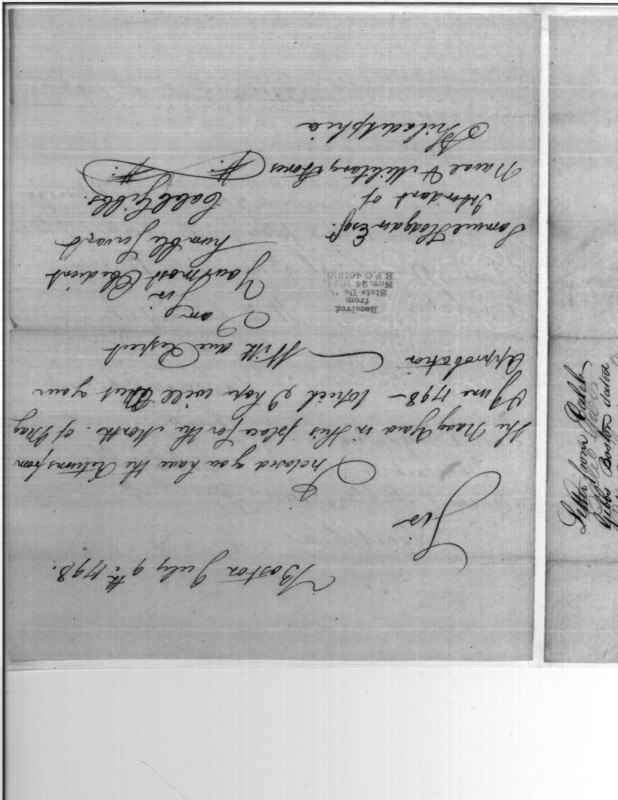 Boston July 9th 1798.
Sir
Inclosed you have the Returns from
the Navy Yard in this place for the Months of May
& June 1798 - which I hope will Meet your
Approbation With due Respect
I am
Sir
Your most Obedient
humble Servant
Caleb Gibbs.
Samuel Hodgdon Esqr.
Intendant of
Naval & Military Stores
Philadelphia
Received
from
State De
Nov. 24
R.P.O. 401810
Letter from Caleb
Gibbs Boston dated